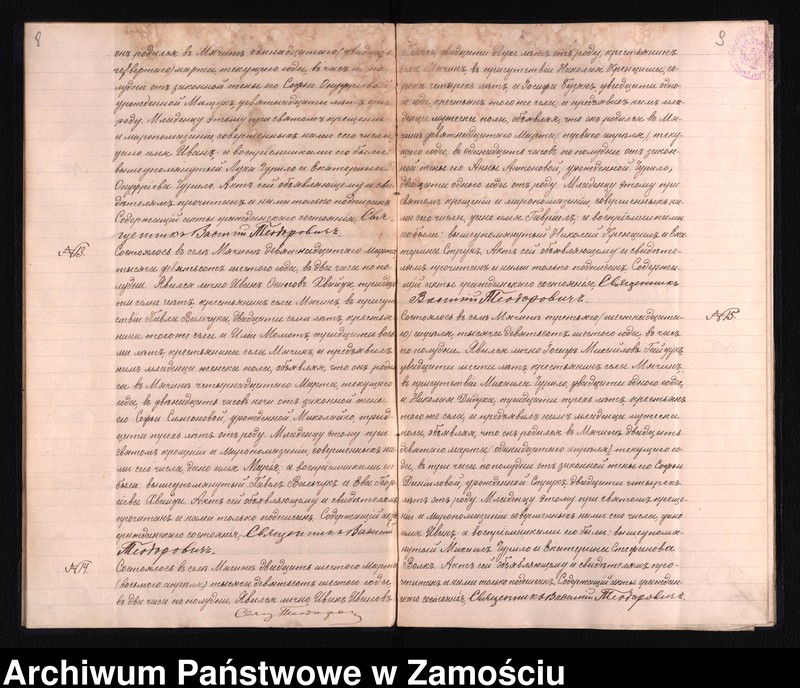 8
онъ родился въ Мячинѣ одиннадцатаго (двадцать
четвертаго) марта текущаго года, въ часъ и по-
лудни отъ законной жены его Софьи Онуфріевой
урожденной девятнадцати лѣтъ отъ
роду. Младенцу этому при святомъ крещеніи
и миропомазаніи, совершенныхъ нами сего числа,
дано имя Иванъ, а воспріемниками его были
вышеупомянутый Лука Чурило и Екатерина
Онуфріева Чурило. Актъ сей объявляющему и сви-
дѣтелямъ прочитанъ и нами только подписанъ.
Содержащій акты гражданскаго состоянія, Свя-
щенникъ Василій Теодоровичъ.
№13.
Состоялось въ селѣ Мячинъ девятнадцатаго Марта
тысяча девятьсотъ шестого года, въ два часа по по-
лудни. Явился лично Иванъ Осиповъ тридца-
ти семи лѣтъ крестьянинъ села Мячинъ въ присут-
ствіи Павла Вильчука, двадцати семи лѣтъ, крестья-
нина того же села и Иліи тридцати вось-
ми лѣтъ, крестьянина села Мячинъ, и предъявилъ
намъ младенца женска пола, объявляя, что она роди-
лась въ Мячинѣ четырнадцатаго Марта, текущаго
года, въ двѣнадцать часовъ ночи отъ законной жены
его Софьи Симоновой, урожденной Миколайко, трид-
цати трехъ лѣтъ отъ роду. Младенцу этому при
святомъ крещеніи и Миропомазаніи, совершенныхъ на-
ми сего числа, дано имя Марья, а воспріемниками ея
были: вышеупомянутый Павелъ Вильчукъ и Ева
Актъ сей объявляющему и свидѣтелямъ
прочитанъ и нами только подписанъ. Содержащій акты
гражданскаго состоянія, Священникъ Василій
Теодоровичъ.
№14.
Состоялось въ селѣ Мячинъ двадцать шестого Марта
(восьмого апрѣля) тысяча девятьсотъ шестого года
въ два часа по полудни. Явился лично Иванъ Ивановъ
Свящ. Теодоров
9
двадцати двухъ лѣтъ отъ роду, крестьянинъ
села Мячинъ, въ присутствіи Николая со-
рока четырехъ лѣтъ, и Іосифа двадцати одно-
го года, крестьянъ того же села, и предъявилъ намъ мла-
денца мужска пола, объявляя, что онъ родился въ Мя-
чинѣ девятнадцатаго Марта (перваго апрѣля) теку-
щаго года, въ одиннадцать часовъ по полудни отъ закон-
ной жены его Анны Антоновой, урожденной Чурило,
двадцати одного года отъ роду. Младенцу этому при
святомъ крещеніи и миропомазаніи, совершенныхъ на-
ми сего числа, дано имя Гавріилъ, а воспріемниками
его были: вышеупомянутый Николай и Ека-
терина Струкъ. Актъ сей объявляющему и свидѣте-
лямъ прочитанъ и нами только подписанъ. Содержа-
щій акты гражданскаго состоянія, Священникъ
Василій Теодоровичъ.
№15.
Состоялось въ селѣ Мячинъ третьяго (шестнадцата-
го) апрѣля, тысяча девятьсотъ шестого года, въ часъ
по полудни. Явился лично Іосифъ Михайловъ
двадцати шести лѣтъ крестьянинъ села Мячинъ,
въ присутствіи Михаила Чурило, двадцати одного года,
и Николая Дидуха, тридцати трехъ лѣтъ крестьянъ
того же села, и предъявилъ намъ младенца мужска
пола, объявляя, что онъ родился въ Мячинѣ двадцать
девятаго марта (одиннадцатаго апрѣля) текущаго го-
да, въ три часа по полудни отъ законной жены его Софьи
Даниловой, урожденной Струкъ, двадцати четырехъ
лѣтъ отъ роду. Младенцу этому при святомъ креще-
ніи и Миропомазаніи совершенныхъ нами сего числа, дано
имя Иванъ, а воспріемниками его были: вышеупомя-
нутый Михаилъ Чурило и Екатерина Стефанова
Волкъ. Актъ сей объявляющему и свидѣтелямъ про-
читанъ и нами только подписанъ. Содержащій акты граждан-
скаго состоянія, Священникъ Василій Теодоровичъ.
Archiwum Państwowe w Zamościu